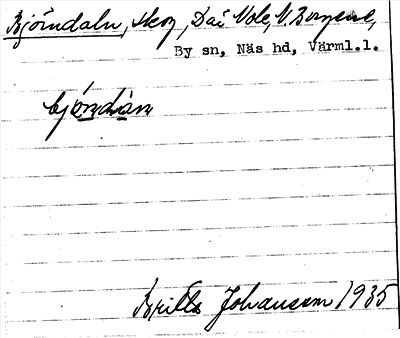 Björndaln, skog, Dai Nole, V. Bergene,
By sn, Näs hd, Värml.l.
bjö̱ndàn
Britta Johansson 1935